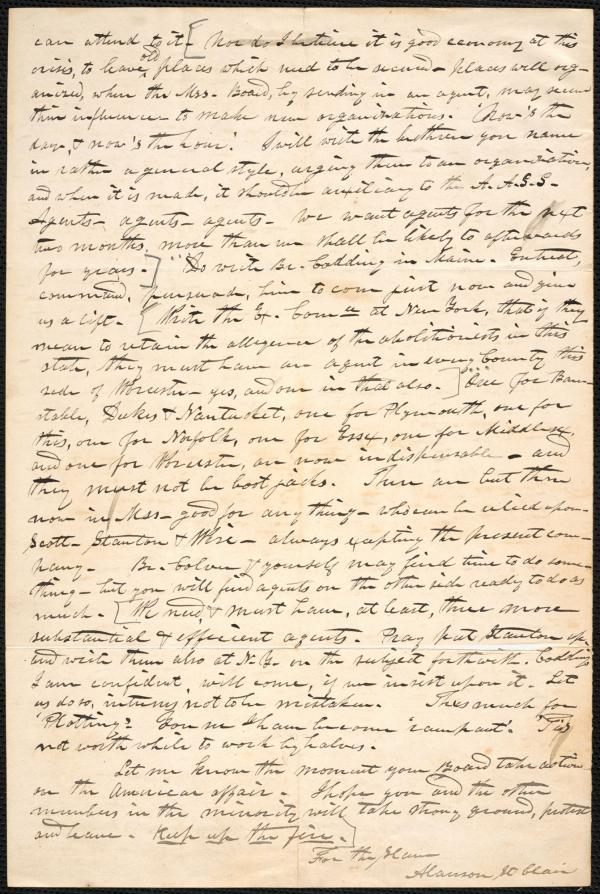 can attend to it - [Nor do I believe it is good economy at this
crisis, to leave old places which need to be secured - places well org-
anized, when the Mss. Board, by sending in an agent, may secure
their influence to make new organizations. 'Now's the
day, & now's the hour'. I will write the brethren you name
in rather a general style, urging them to an organization,
and when it is made, it should be auxiliary to the A.A.S.S.
Agents - agents - agents - We want agents for the next
two months, more than we shall be likely to afterwards
for years.-] "Do write Br. Codding in Maine. Entreat,
command, persuade, him to come just now and give
us a lift - [Write the Ex. Comee at New York, that if they
mean to retain the allegiance of the abolitionists in this
state, they must have an agent in every County this
side of Worcester - yes, and one in that also.-] One for Barn-
stable, Dukes & Nantucket, one for Plymouth, one for
this, one for Norfolk, one for Essex, one for Middlesex,
and one for Worcester, are now indispensable - and
they must not be boot jacks. There are but three
now in Mss - good for any thing - who can be relied upon -
Scott - Stanton & Wise - always excepting the present com-
pany - Br. Colver & yourself may find time to do some-
thing - but you will find agents on the other side ready to do as
much. [We need, & must have, at least, three more
substantial & efficient agents. Pray put Stanton up,
and write them also at N.Y. on the subject forthwith. Codding,
I am confident, will come, if we insist upon it. Let
us do so, in terms not to be mistaken. Thus much for
'Plotting'. For me I have become 'rampant'. 'Tis
not worth while to work by halves.
Let me know the moment your Board take action
on the American affair - I hope you and the other
members in the minority will take strong ground, protest
and leave - Keep up the fire.]
For the Slave
Alanson St Clair